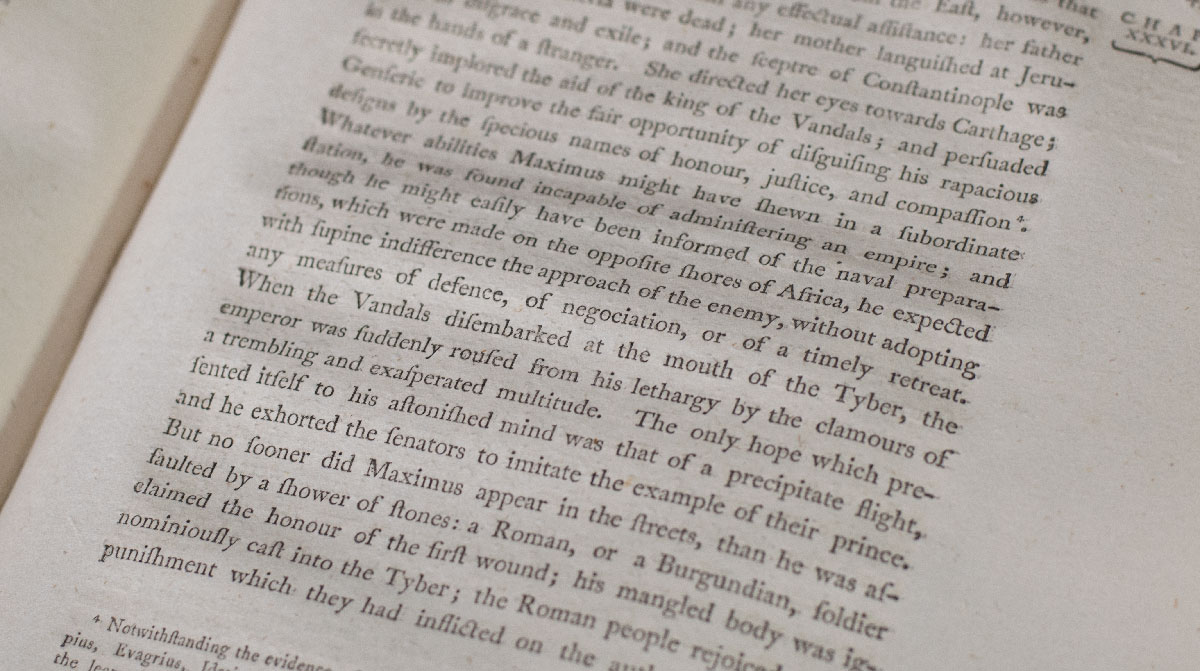 that
the Eaſt, however,
C H A P
XXXVI.
any effectual aſſiſtance: her father
were dead; her mother languiſhed at Jeru-
diſgrace and exile; and the ſceptre of Conſtantinople was
in the hands of a ſtranger. She directed her eyes towards Carthage;
ſecretly implored the aid of the king of the Vandals; and perſuaded
Genſeric to improve the fair opportunity of diſguiſing his rapacious
deſigns by the ſpecious names of honour, juſtice, and compaſſion ⁴.
Whatever abilities Maximus might have ſhewn in a ſubordinate
ſtation, he was found incapable of adminiſtering an empire; and
though he might eaſily have been informed of the naval prepara-
tions, which were made on the oppoſite ſhores of Africa, he expected
with ſupine indifference the approach of the enemy, without adopting
any meaſures of defence, of negociation, or of a timely retreat.
When the Vandals diſembarked at the mouth of the Tyber, the
emperor was ſuddenly rouſed from his lethargy by the clamours of
a trembling and exaſperated multitude. The only hope which pre-
ſented itſelf to his aſtoniſhed mind was that of a precipitate flight,
and he exhorted the ſenators to imitate the example of their prince.
But no ſooner did Maximus appear in the ſtreets, than he was aſ-
ſaulted by a ſhower of ſtones: a Roman, or a Burgundian, ſoldier
claimed the honour of the firſt wound; his mangled body was ig-
nominiouſly caſt into the Tyber; the Roman people rejoiced
puniſhment which they had inflicted on the
⁴ Notwithſtanding the evidence
pius, Evagrius,
the